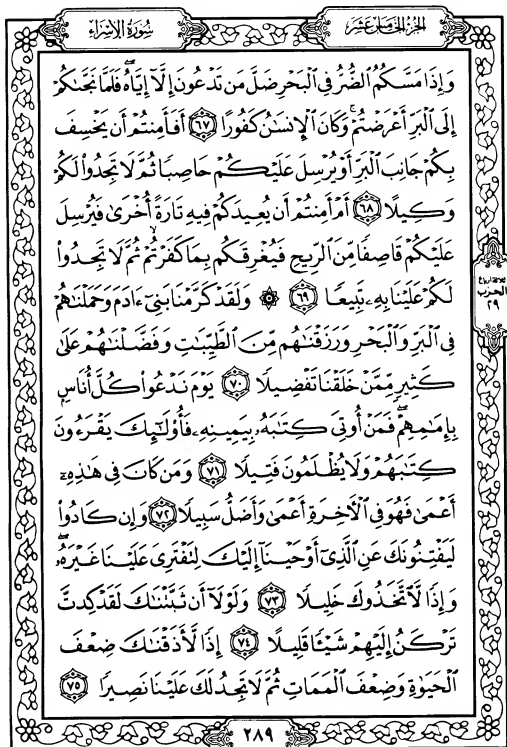 سُورَةُ الإِسْرَاءِ
الجُزْءُ الخَامِسَ عَشَرَ
وَإِذَا مَسَّكُمُ ٱلضُّرُّ فِى ٱلْبَحْرِ ضَلَّ مَن تَدْعُونَ إِلَّآ إِيَّاهُۖ فَلَمَّا نَجَّىٰكُمْ
إِلَى ٱلْبَرِّ أَعْرَضْتُمْۚ وَكَانَ ٱلْإِنسَٰنُ كَفُورًا ٦٧ أَفَأَمِنتُمْ أَن يَخْسِفَ
بِكُمْ جَانِبَ ٱلْبَرِّ أَوْ يُرْسِلَ عَلَيْكُمْ حَاصِبًا ثُمَّ لَا تَجِدُوا۟ لَكُمْ
وَكِيلًا ٦٨ أَمْ أَمِنتُمْ أَن يُعِيدَكُمْ فِيهِ تَارَةً أُخْرَىٰ فَيُرْسِلَ
عَلَيْكُمْ قَاصِفًا مِّنَ ٱلرِّيحِ فَيُغْرِقَكُم بِمَا كَفَرْتُمْۙ ثُمَّ لَا تَجِدُوا۟
لَكُمْ عَلَيْنَا بِهِۦ تَبِيعًا ٦٩ ۞ وَلَقَدْ كَرَّمْنَا بَنِىٓ ءَادَمَ وَحَمَلْنَٰهُمْ
فِى ٱلْبَرِّ وَٱلْبَحْرِ وَرَزَقْنَٰهُم مِّنَ ٱلطَّيِّبَٰتِ وَفَضَّلْنَٰهُمْ عَلَىٰ
كَثِيرٍ مِّمَّنْ خَلَقْنَا تَفْضِيلًا ٧٠ يَوْمَ نَدْعُوا۟ كُلَّ أُنَاسٍۭ
بِإِمَٰمِهِمْۖ فَمَنْ أُوتِىَ كِتَٰبَهُۥ بِيَمِينِهِۦ فَأُو۟لَٰٓئِكَ يَقْرَءُونَ
كِتَٰبَهُمْ وَلَا يُظْلَمُونَ فَتِيلًا ٧١ وَمَن كَانَ فِى هَٰذِهِۦٓ
أَعْمَىٰ فَهُوَ فِى ٱلْءَاخِرَةِ أَعْمَىٰ وَأَضَلُّ سَبِيلًا ٧٢ وَإِن كَادُوا۟
لَيَفْتِنُونَكَ عَنِ ٱلَّذِىٓ أَوْحَيْنَآ إِلَيْكَ لِتَفْتَرِىَ عَلَيْنَا غَيْرَهُۥۖ
وَإِذًا لَّٱتَّخَذُوكَ خَلِيلًا ٧٣ وَلَوْلَآ أَن ثَبَّتْنَٰكَ لَقَدْ كِدتَّ
تَرْكَنُ إِلَيْهِمْ شَيْـًٔا قَلِيلًا ٧٤ إِذًا لَّأَذَقْنَٰكَ ضِعْفَ
ٱلْحَيَوٰةِ وَضِعْفَ ٱلْمَمَاتِ ثُمَّ لَا تَجِدُ لَكَ عَلَيْنَا نَصِيرًا ٧٥
ثلاثة أرباع
الحزب
٢٩
٢٨٩